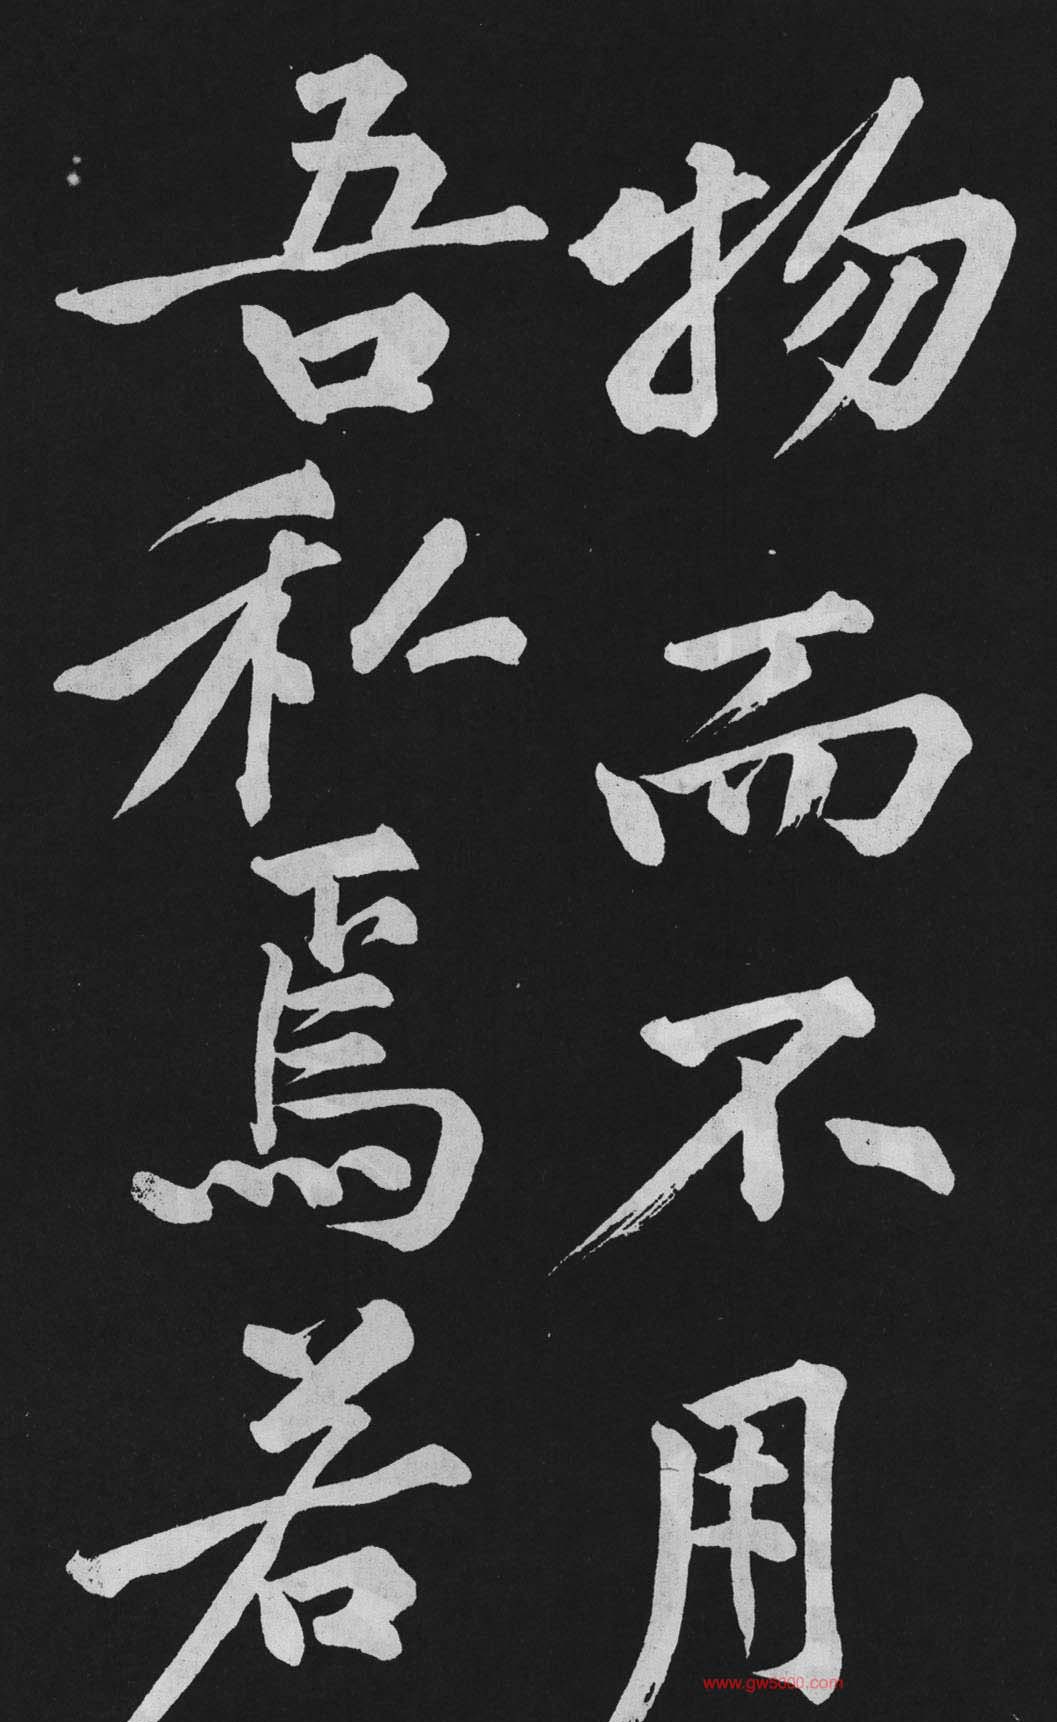 物而不用
吾私焉若
www.gw5000.com